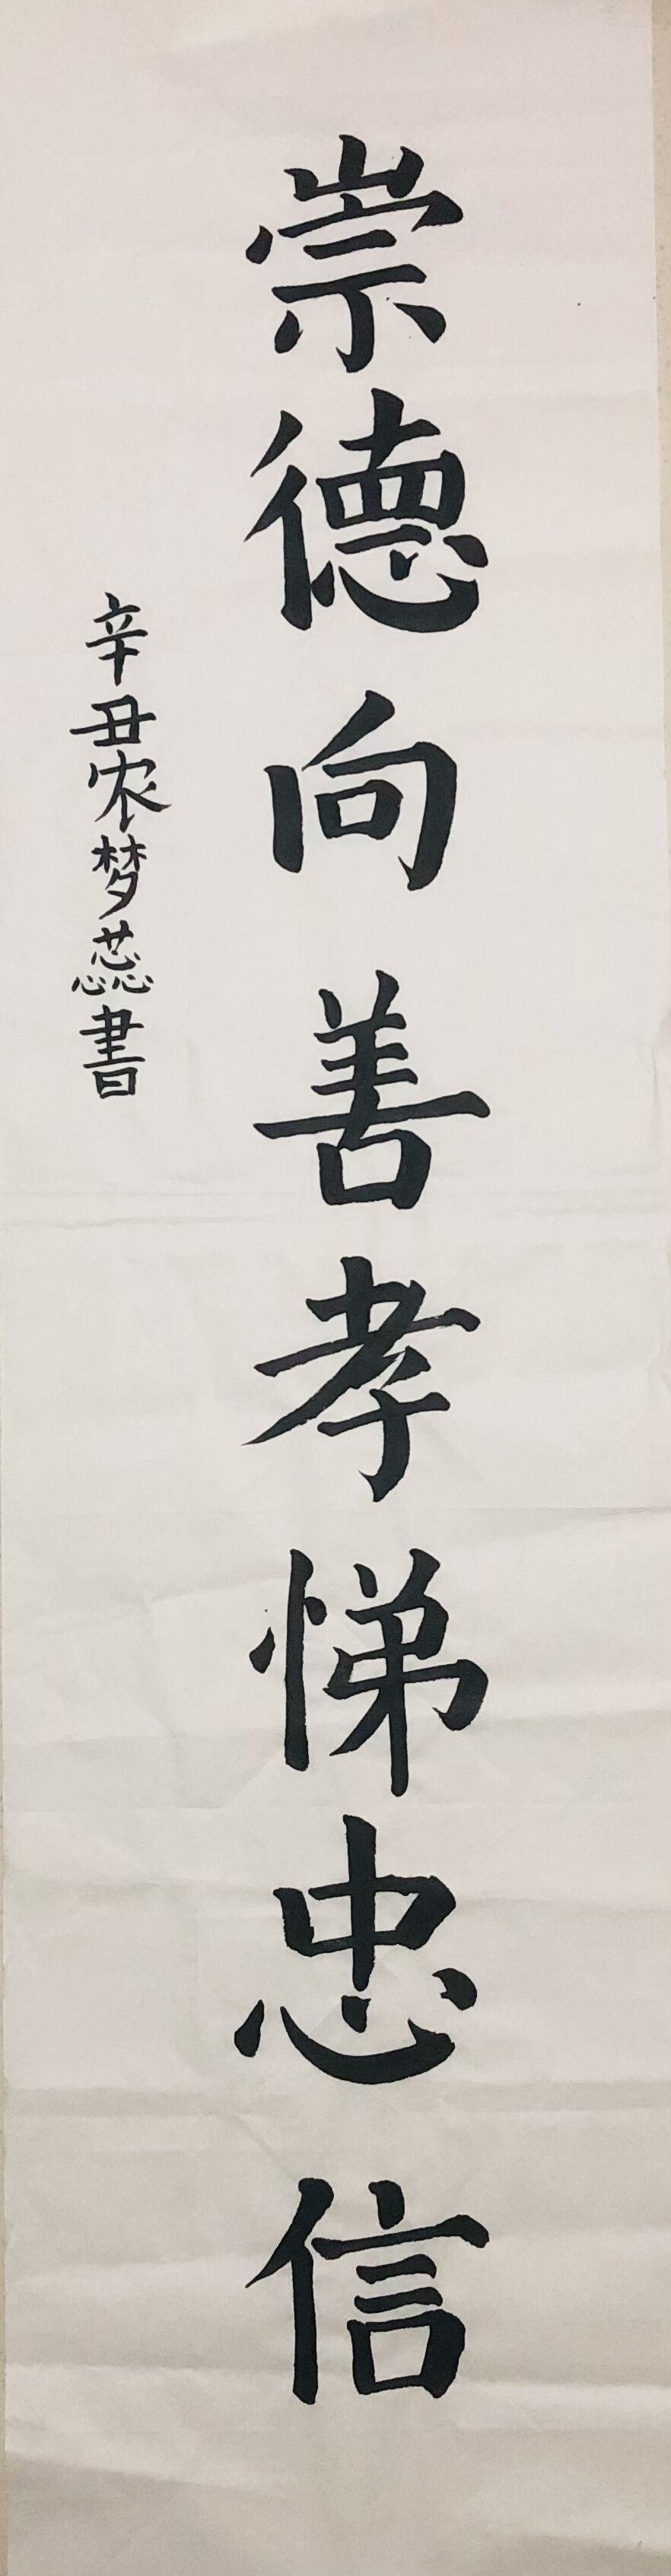 崇德向善孝悌忠信
辛丑农梦蕊書